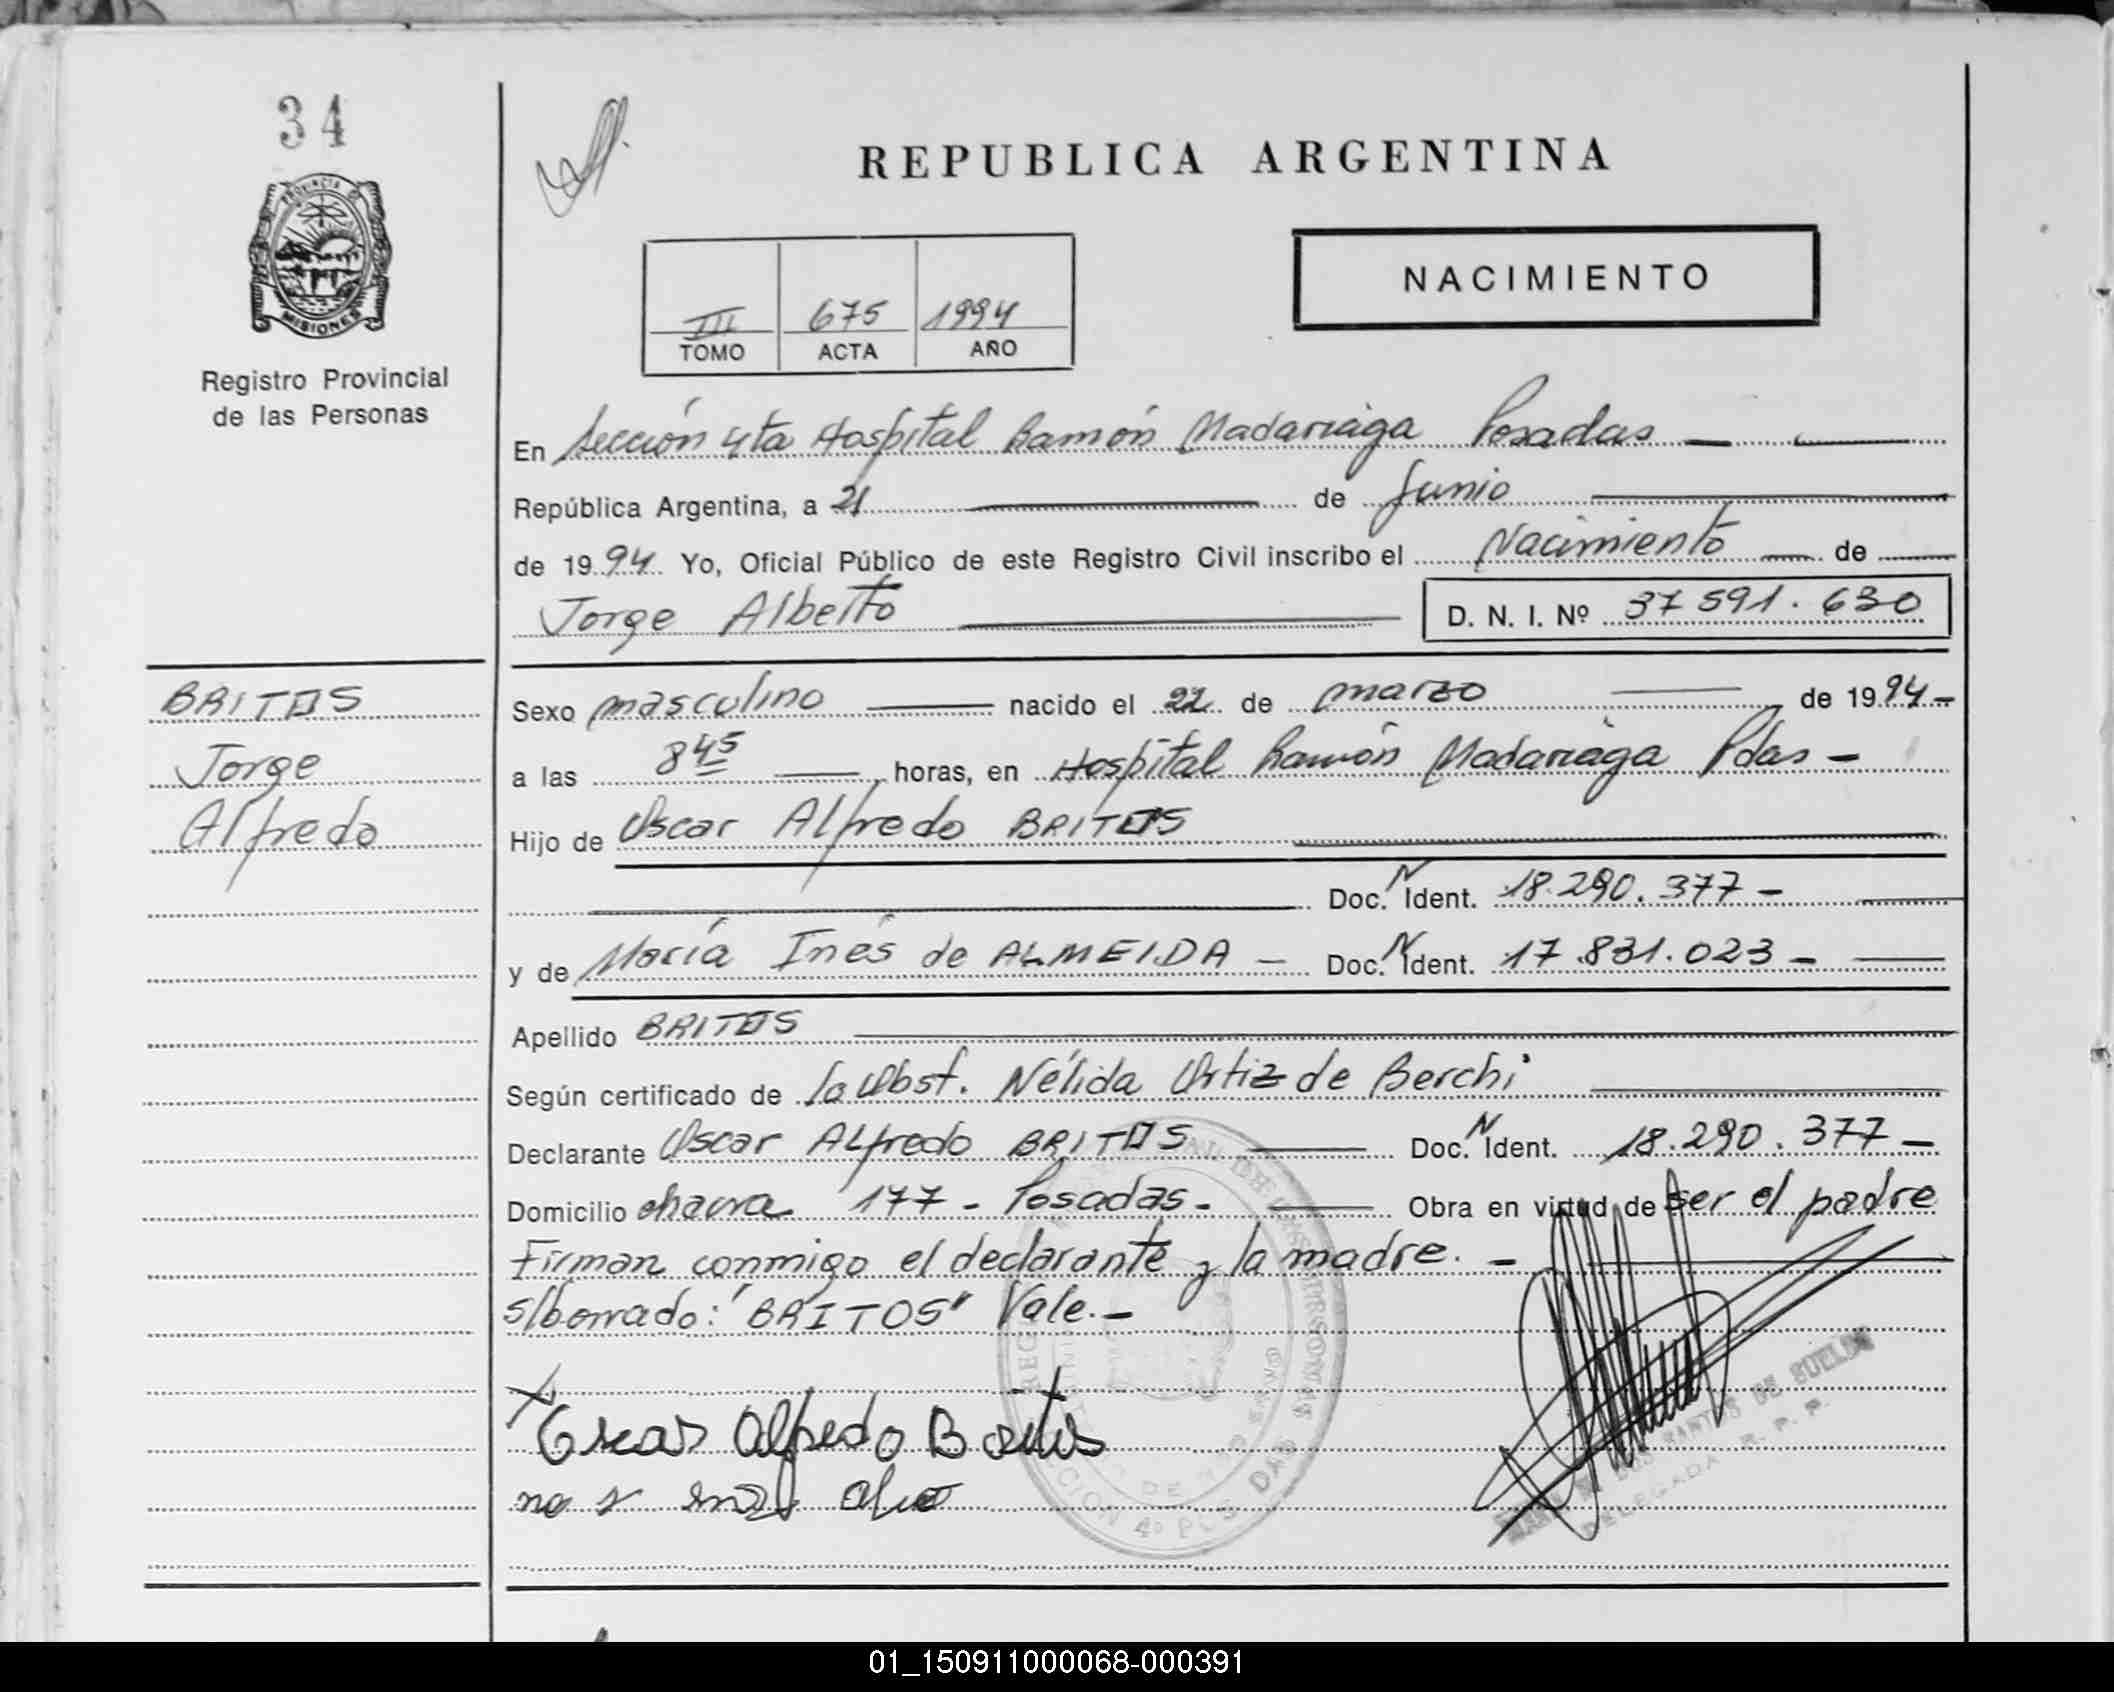 34
PROVINCIA DE
MISIONES
Registro Provincial
de las Personas
REPUBLICA ARGENTINA
NACIMIENTO
III 675 1994
TOMO ACTA AÑO
En Sección 4ta Hospital Ramón Madariaga Posadas
República Argentina, a 21 de Junio
de 1994 Yo, Oficial Público de este Registro Civil inscribo el Nacimiento de
Jorge Alberto D. N. I. Nº 37 591.630
BRITOS
Jorge
Alfredo
Sexo masculino nacido el 22 de marzo de 1994-
a las 8 45 horas, en Hospital Ramón Madariaga Pdas -
Hijo de Oscar Alfredo BRITOS
Doc. N Ident. 18.290.377 -
y de María Inés de ALMEIDA - Doc. N Ident. 17.831.023 -
Apellido BRITOS
Según certificado de la Obst. Nélida Ortiz de Berchi
Declarante Oscar Alfredo BRITOS Doc. N Ident. 18.290.377 -
Domicilio chacra 177 - Posadas - Obra en virtud de ser el padre
Firman conmigo el declarante y la madre. -
s/borrado: "BRITOS" Vale. -
Oscar Alfredo Britos
DOS SANTOS DE SUELDO
DELEGADA R. P. P.
SECCION 4º POSADAS
01_150911000068-000391